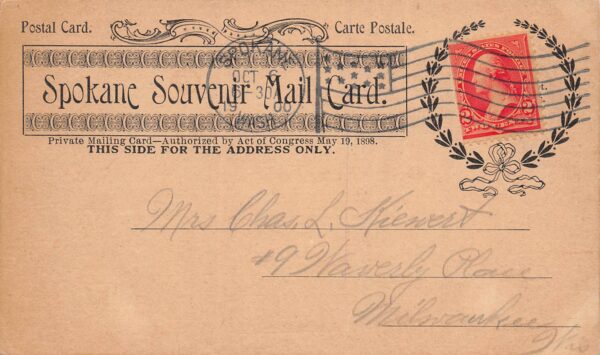 Postal Card. Carte Postale.
SPOKANE
OCT 6
30
19 00
WASH.
Spokane Souvenir Mail Card.
Private Mailing Card—Authorized by Act of Congress May 19, 1898.
THIS SIDE FOR THE ADDRESS ONLY.
Mrs Chas. L. Kiewert
#9 Waverly Place
Milwaukee
Wis